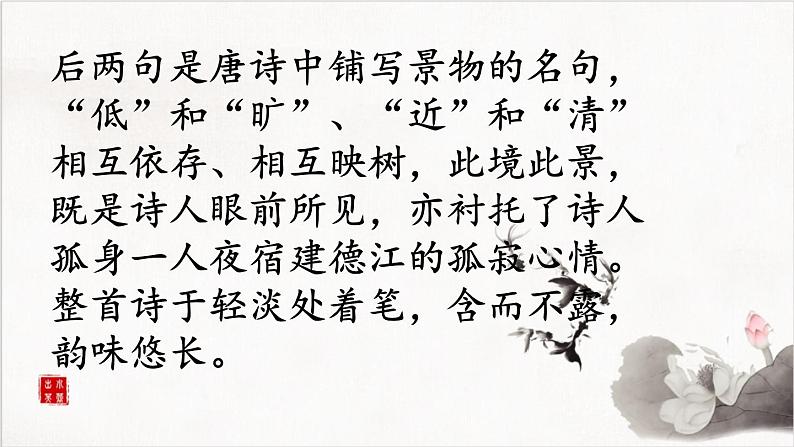 后两句是唐诗中铺写景物的名句，
“低”和“旷”、“近”和“清”
相互依存、相互映树，此境此景，
既是诗人眼前所见，亦衬托了诗人
孤身一人夜宿建德江的孤寂心情。
整首诗于轻淡处着笔，含而不露，
韵味悠长。